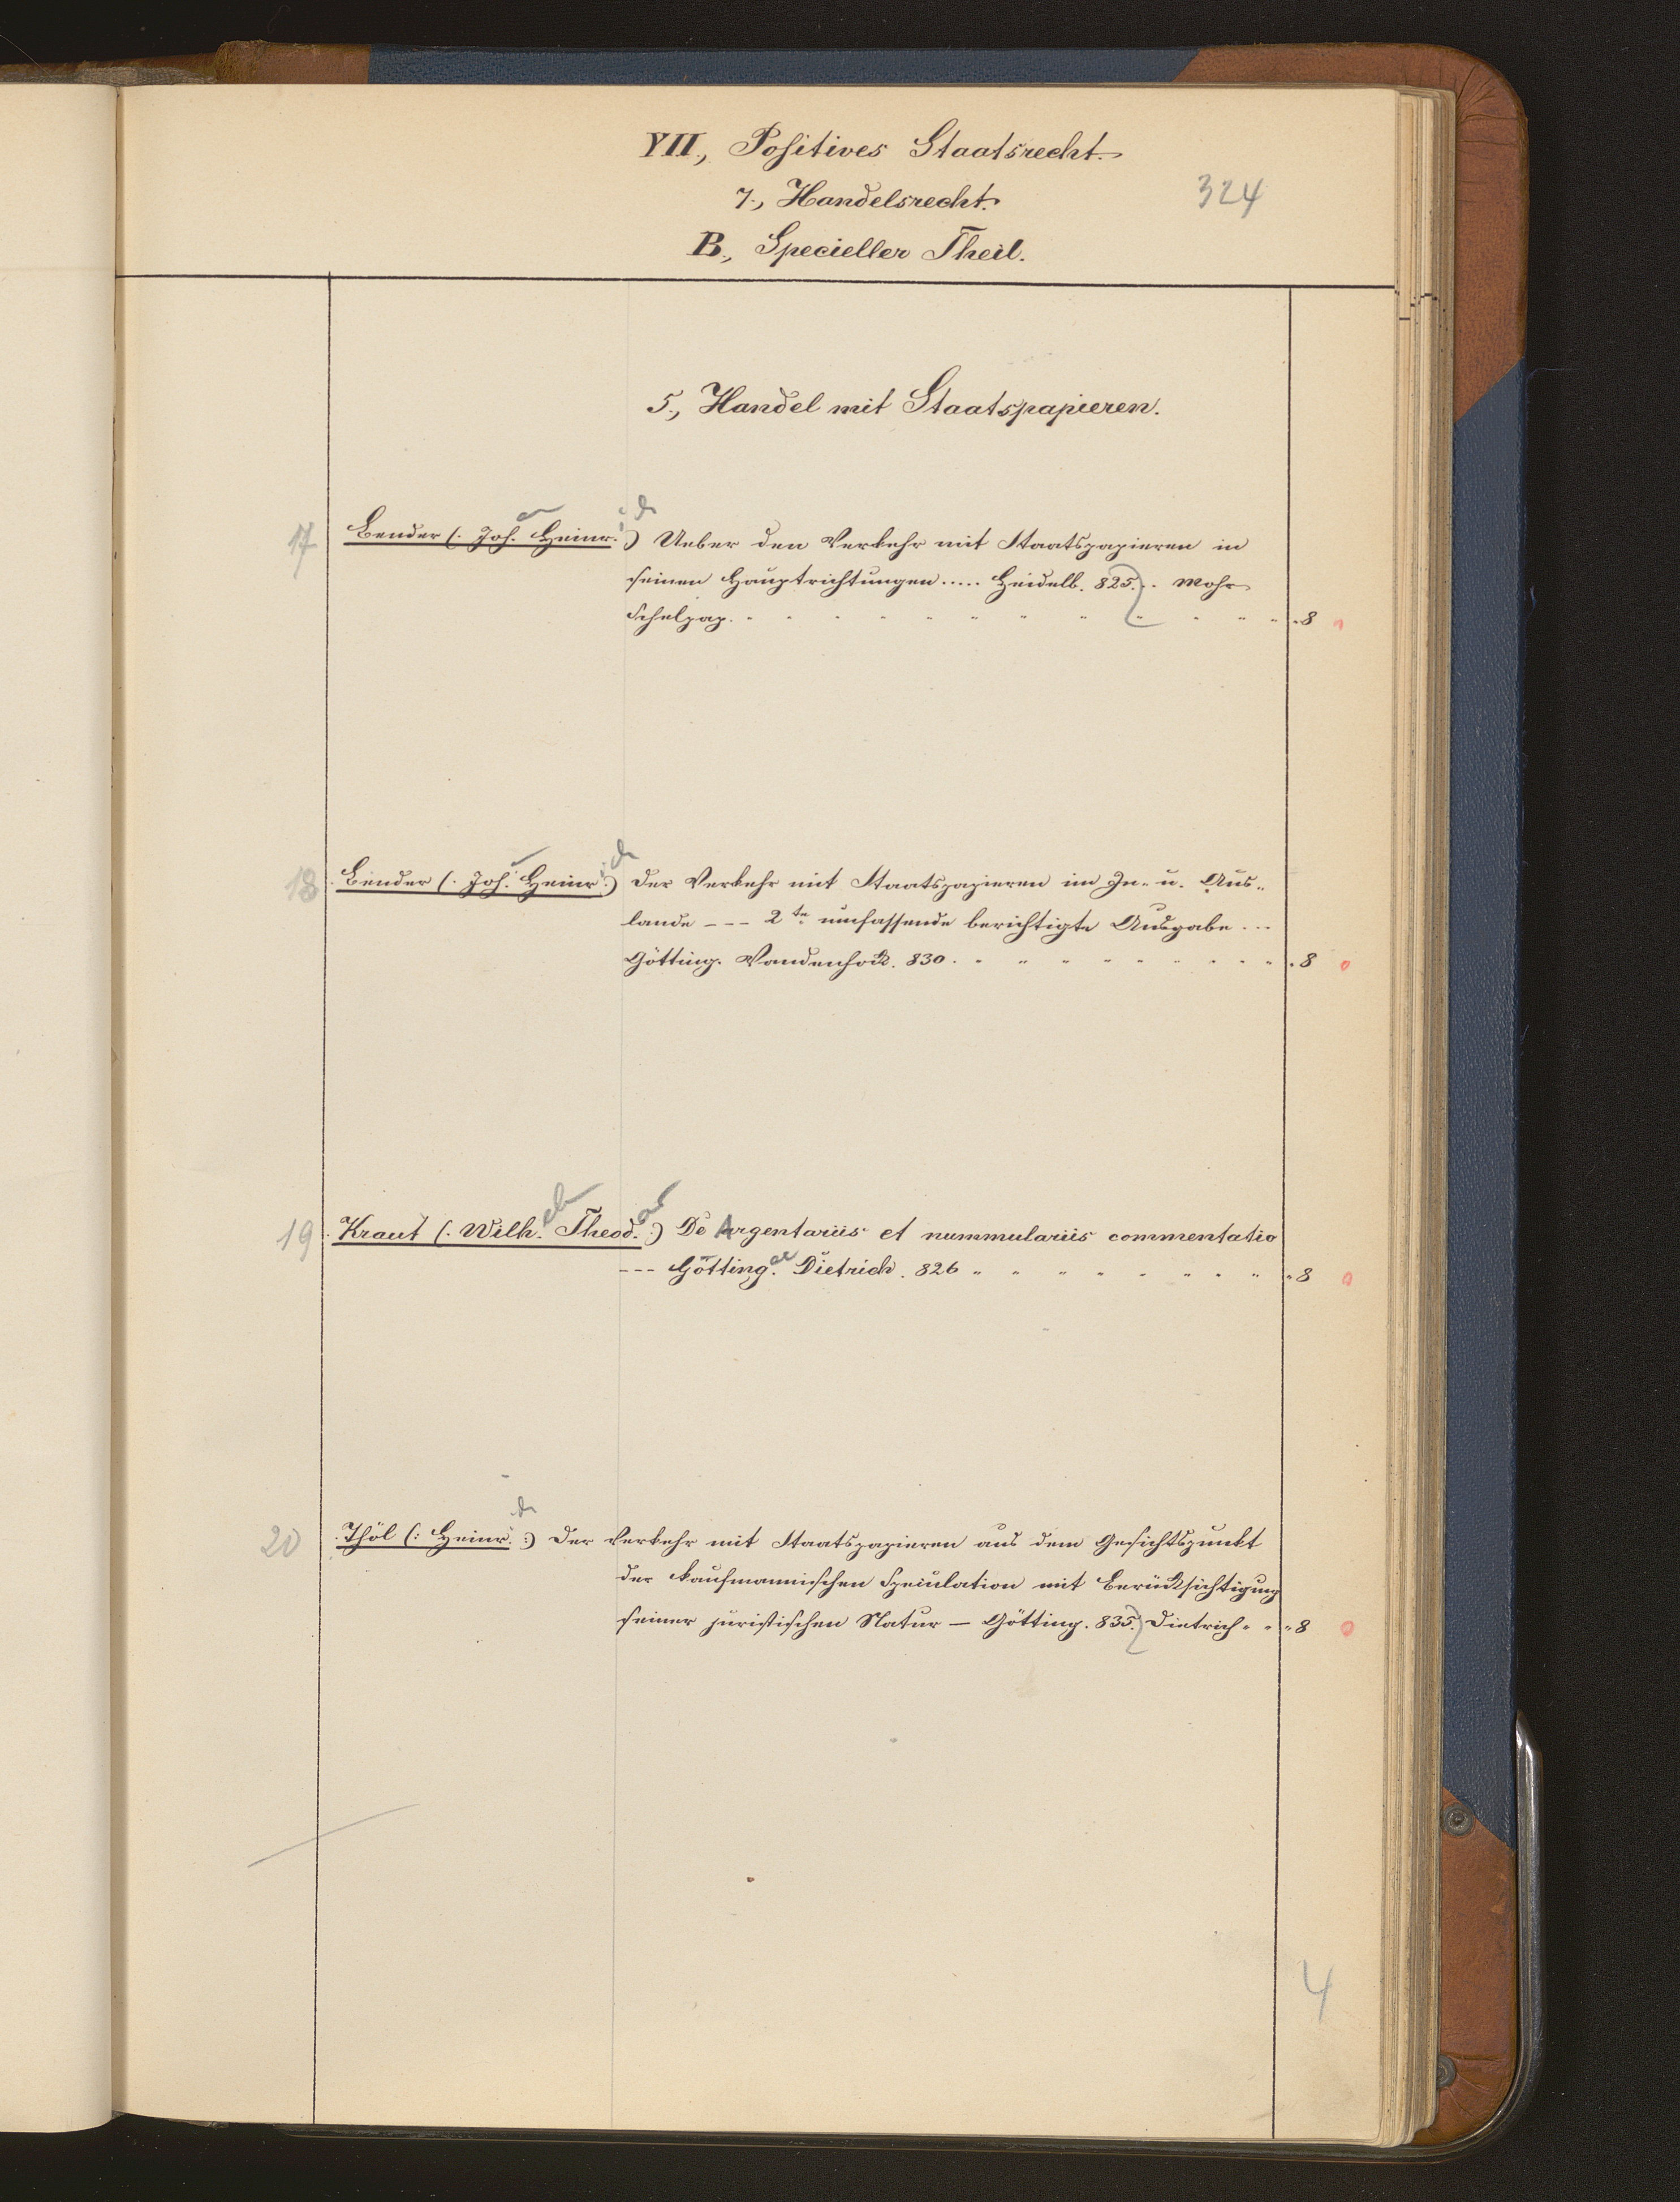 VII., Positives Staatsrecht.
7., Handelsrecht.
324
B., Specieller Theil.
5., Handel mit Staatspapieren.
17 Bender (. Joh. Heinr. :) Ueber den Verkehr mit Staatspapieren in
seinen Hauptrichtungen ..... Heidelb. 825. .. Mohr
8
18 Bender (. Joh. Heinr. :) Der Verkehr mit Staatspapieren im In- u. Aus-
lande --- 2te umfassende berichtigte Ausgabe ...
Götting. Vandenhock. 830. 8
19 Kraut (. Wilh. Theod. :) De Argentariis et nummulariis commentatio
--- Götting. Dietrich. 826 8
20 Thöl (: Heinr. :) Der Verkehr mit Staatspapieren aus dem Gesichtspunkt
der kaufmannischen Speculation mit Berücksichtigung
seiner juristischen Natur — Götting. 835. Dietrich 8
4